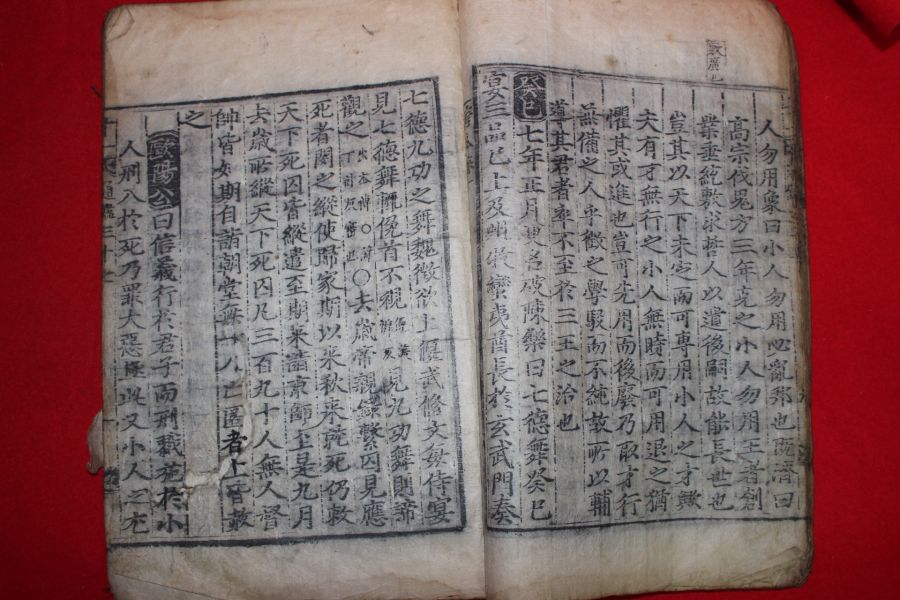 人勿用象曰小人勿用必亂邦也旣濟曰
高宗伐鬼方三年克之小人勿用王者創
業垂統敷求哲人以遺後嗣故能長世也
豈其以天下未定而可專用小人之才歟
夫有才無行之小人無時而可用退之猶
懼其或進也豈可先用而後廢乃取才行
無備之人乎徵之學駁而不純故所以輔
導其君者卒不至於三王之治也
癸巳七年正月更名破陳樂曰七德舞癸巳
宴三品已上及州牧蠻夷酋長於玄武門奏
七德九功之舞魏徵欲上偃武修文每侍宴
見七德舞輒俛首不視見九功舞則諦
觀之○去歲帝親錄繫囚見應
死者閔之縱使歸家期以來秋來就死仍敕
天下死囚皆縱遣至期來詣京師至是九月
去歲所縱天下死囚凡三百九十人無人督
帥皆如期自詣朝堂無一人亡匿者上皆赦
之
歐陽公曰信義行於君子而刑戮施於小
人刑入於死乃罪大惡極此又小人之尤